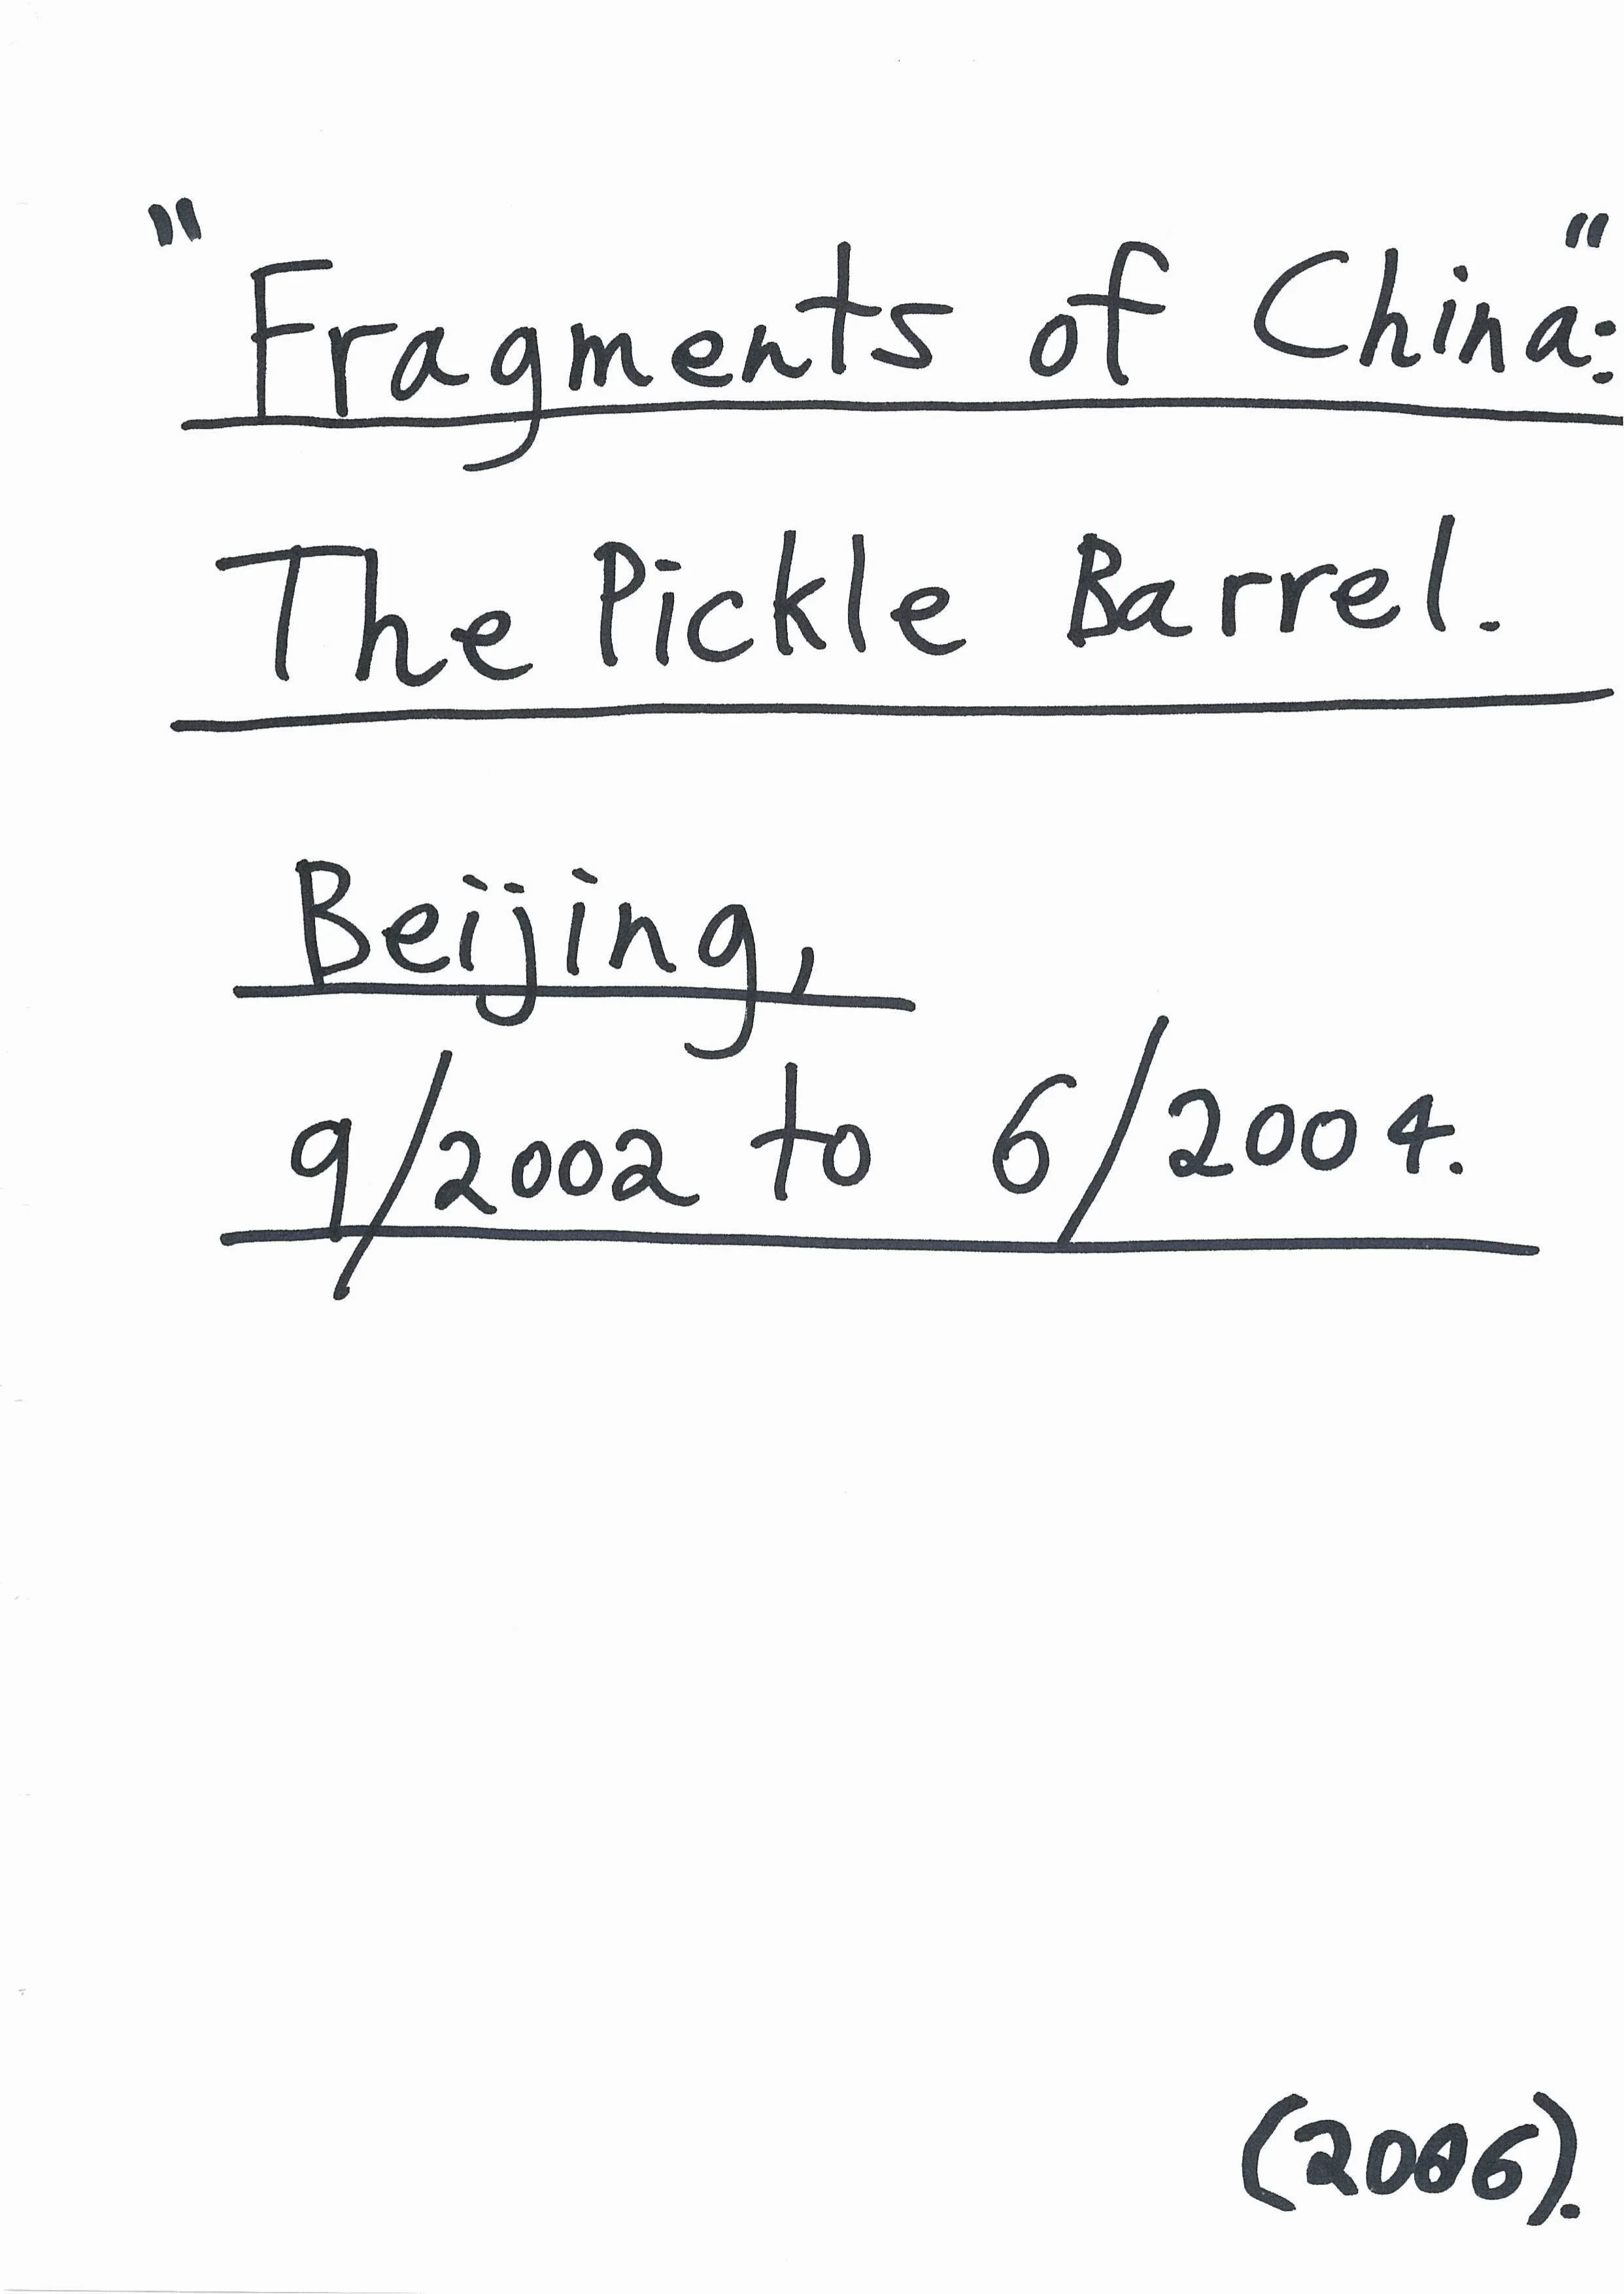 "Fragments of China:"
The Pickle Barrel.
Beijing,
9/2002 to 6/2004.
(2006).